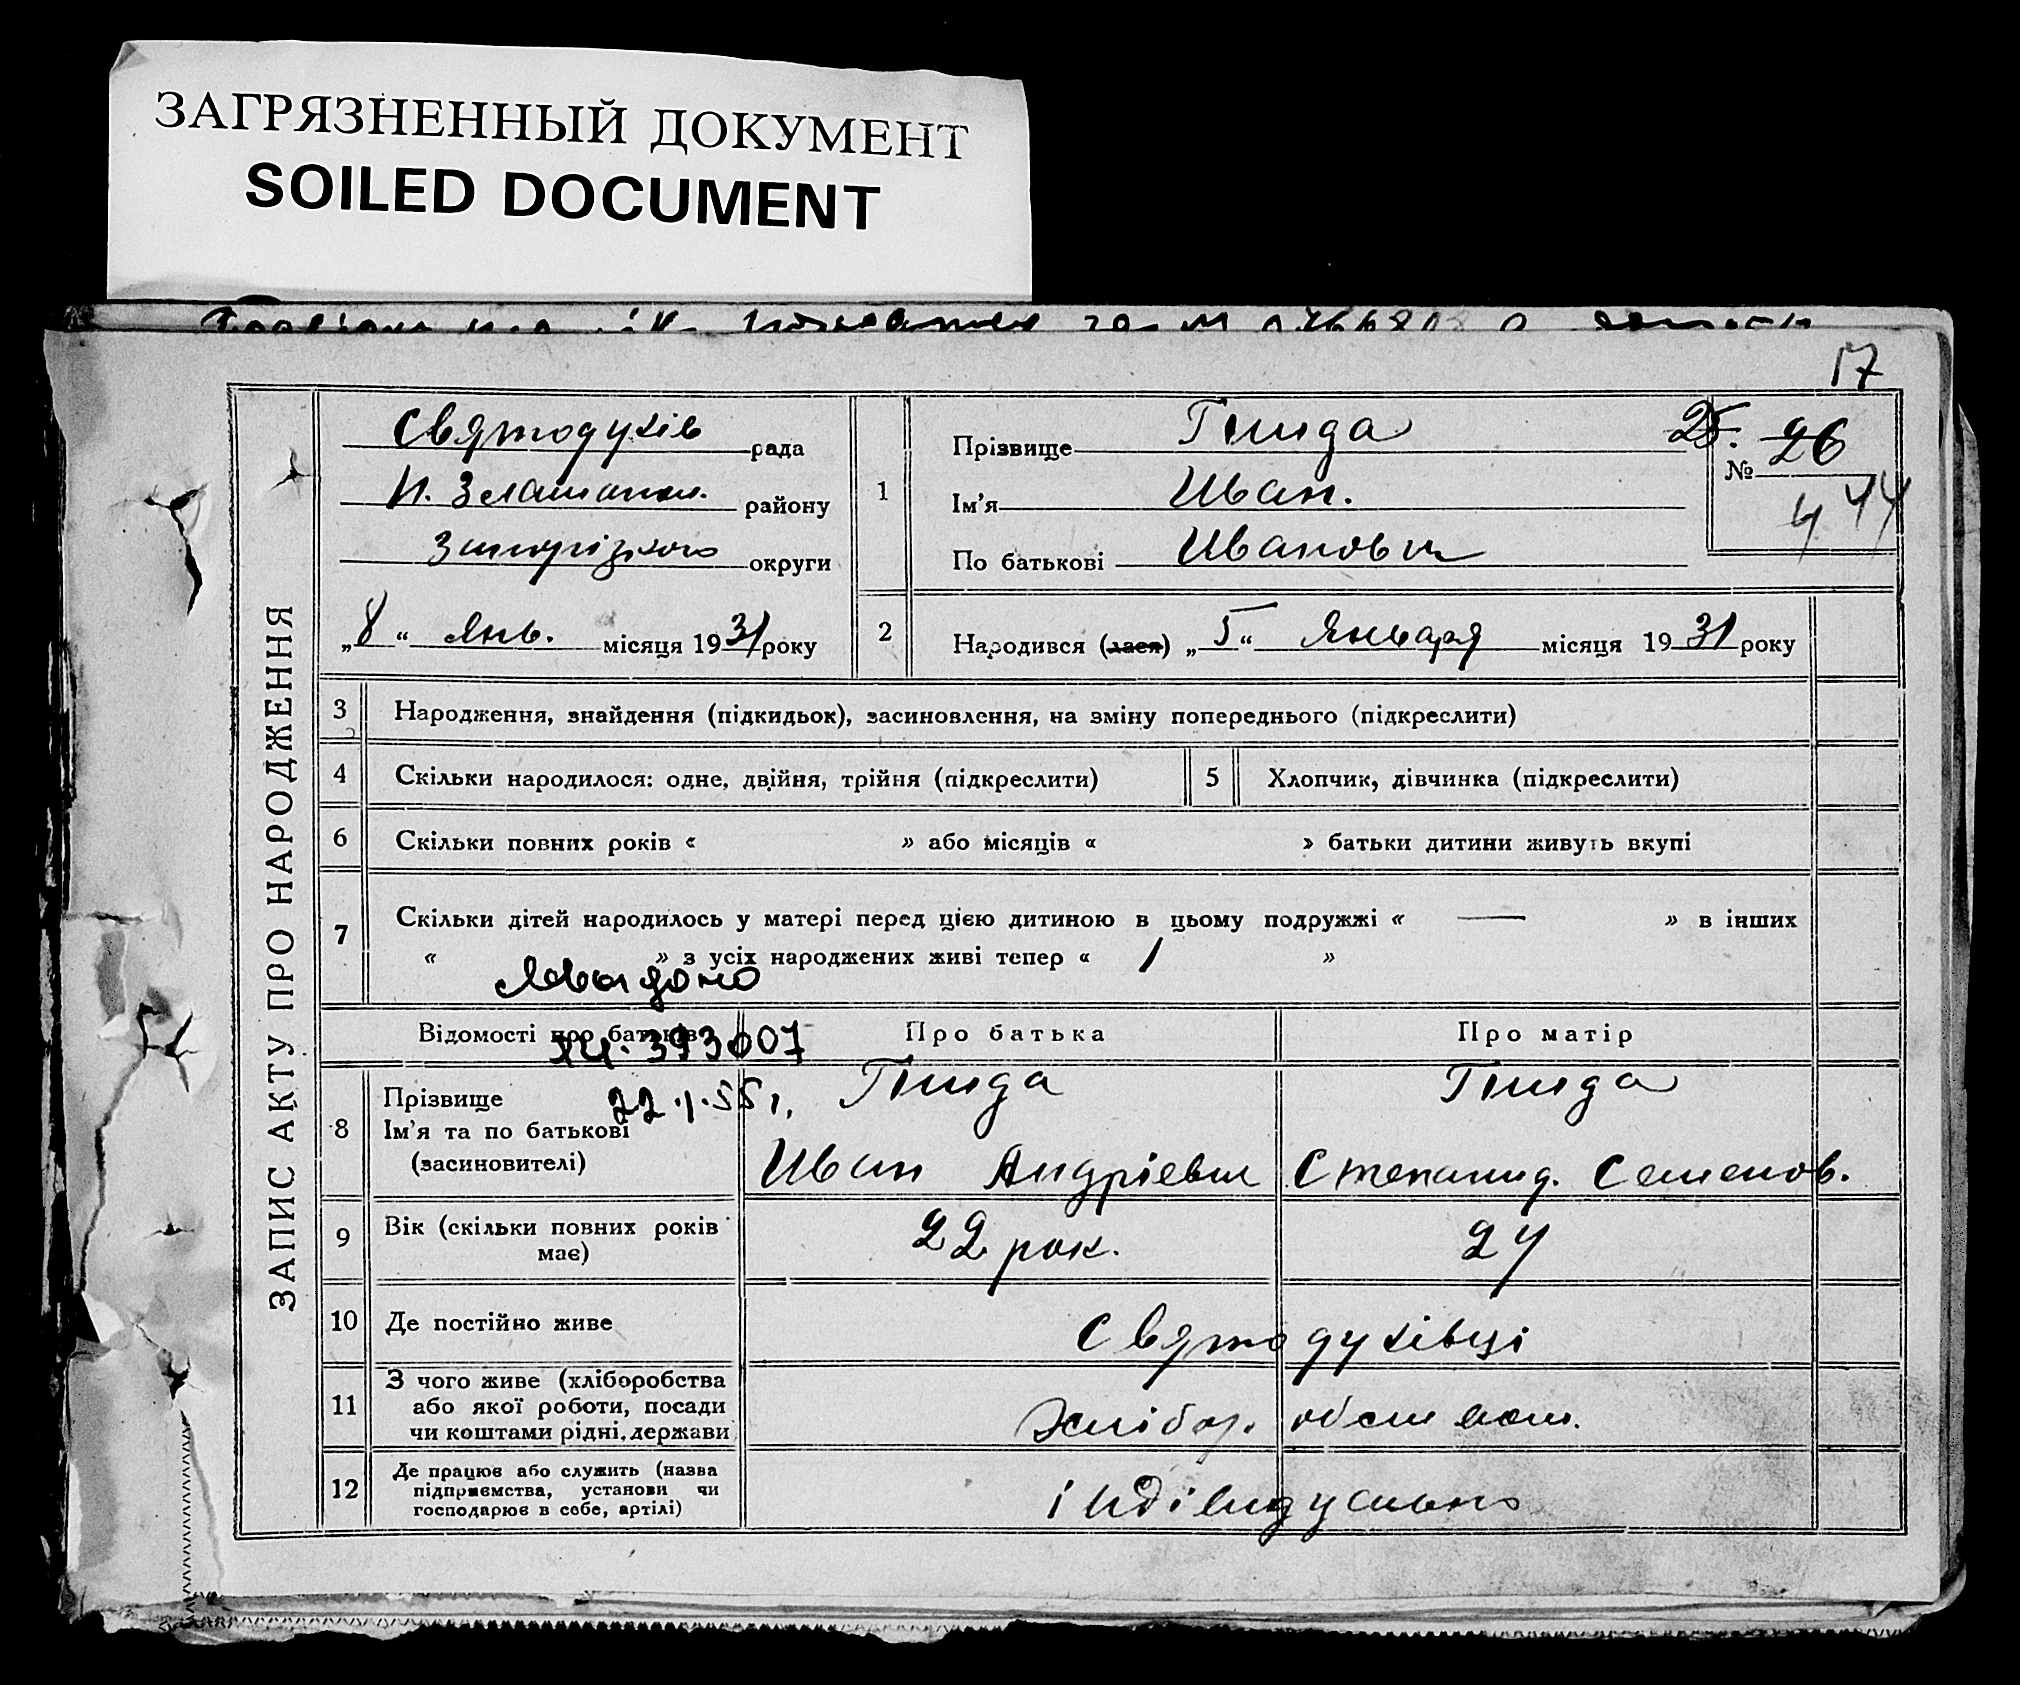 ЗАГРЯЗНЕННЫЙ ДОКУМЕНТ
SOILED DOCUMENT
17
ЗАПИС АКТУ ПРО НАРОДЖЕННЯ
Святодухів рада
Н. Златопол. району
Запорізького округи
„8“ Янв. місяця 1931 року
1
Прізвище Гнида
Ім'я Иван.
По батькові Иванович
25. № 26
44
2 Народився (лася) „5“ Января місяця 1931 року
3 Народження, знайдення (підкидьок), засиновлення, на зміну попереднього (підкреслити)
4 Скільки народилося: одне, двійня, трійня (підкреслити)
5 Хлопчик, дівчинка (підкреслити)
6 Скільки повних років « » або місяців « » батьки дитини живуть вкупі
7 Скільки дітей народилось у матері перед цією дитиною в цьому подружжі « — » в інших
« » з усіх народжених живі тепер « 1 »
Відомості про батьків
Про батька
Про матір
393007
22.1.55 г.
8 Прізвище
Ім'я та по батькові
(засиновителі)
Гнида
Иван Андріевич
Гнида
Степанид. Семенов.
9 Вік (скільки повних років
має)
22 рок.
24
10 Де постійно живе
Святодухівці
11 З чого живе (хліборобства
або якої роботи, посади
чи коштами рідні, держави
Хлібор.
12 Де працює або служить (назва
підприємства, установи чи
господарює в себе, артілі)
індівидуально